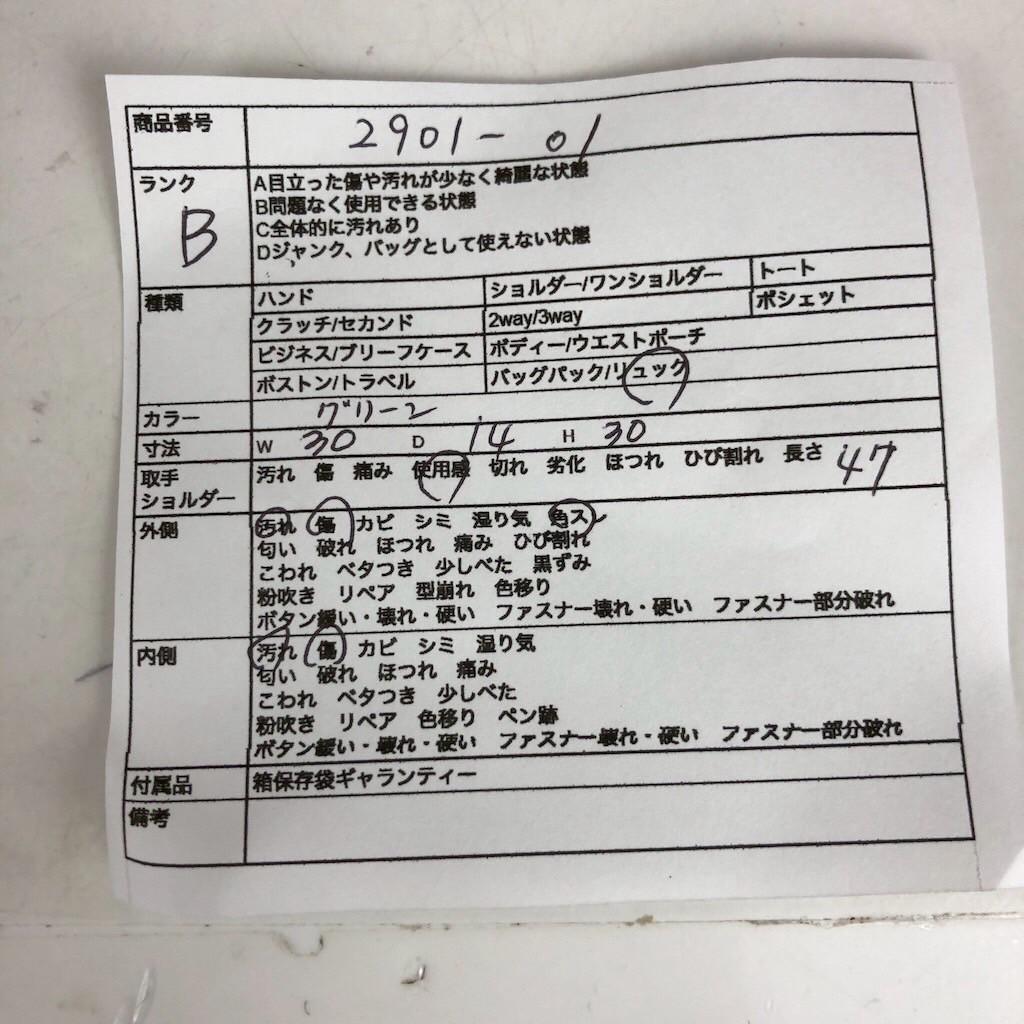 商品番号 2901-01
ランク B
A目立った傷や汚れが少なく綺麗な状態
B問題なく使用できる状態
C全体的に汚れあり
Dジャンク、バッグとして使えない状態
種類 ハンド ショルダー/ワンショルダー トート
クラッチ/セカンド 2way/3way ポシェット
ビジネス/ブリーフケース ボディー/ウエストポーチ
ボストン/トラベル バッグパック/リュック
カラー グリーン
寸法 W 30 D 14 H 30
取手 汚れ 傷 痛み 使用感 切れ 劣化 ほつれ ひび割れ 長さ 47
ショルダー
外側 汚れ 傷 カビ シミ 湿り気 色スレ
匂い 破れ ほつれ 痛み ひび割れ
こわれ ベタつき 少しべた 黒ずみ
粉吹き リペア 型崩れ 色移り
ボタン緩い・壊れ・硬い ファスナー壊れ・硬い ファスナー部分破れ
内側 汚れ 傷 カビ シミ 湿り気
匂い 破れ ほつれ 痛み
こわれ ベタつき 少しべた
粉吹き リペア 色移り ペン跡
ボタン緩い・壊れ・硬い ファスナー壊れ・硬い ファスナー部分破れ
付属品 箱保存袋ギャランティー
備考